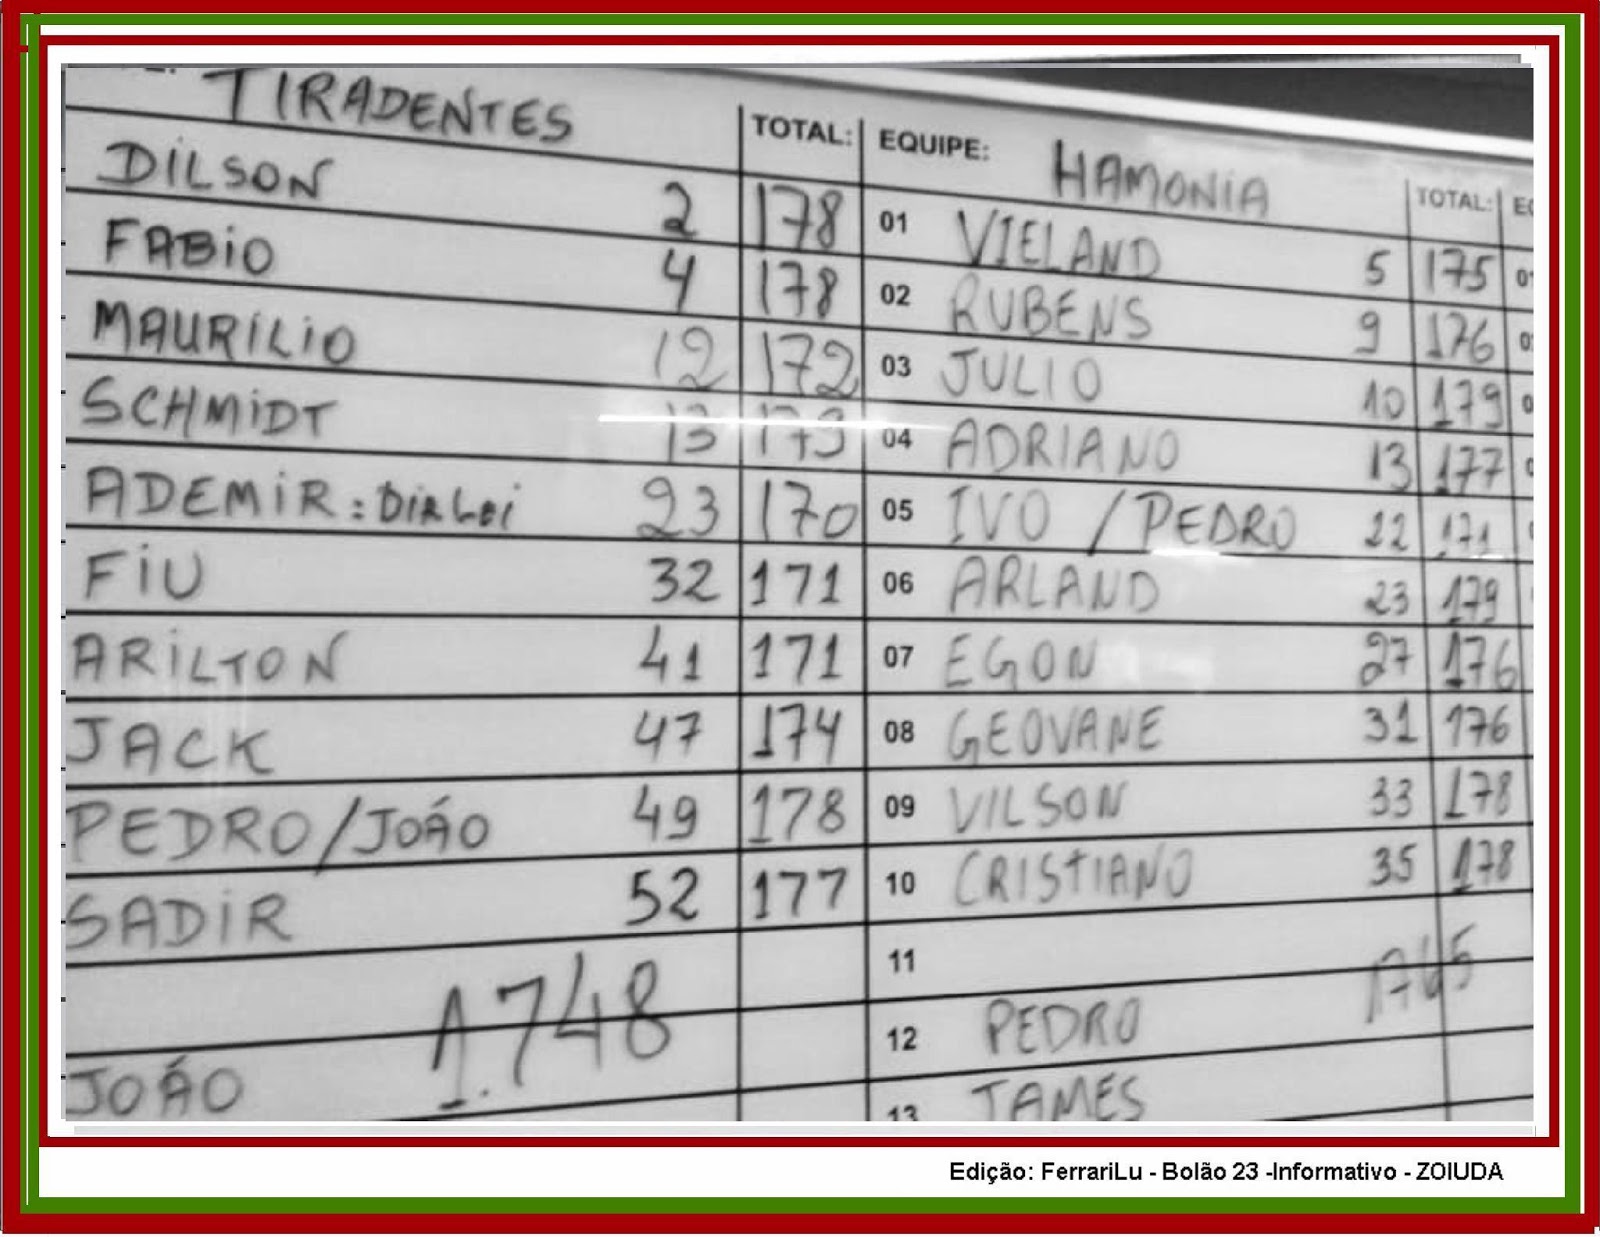 TIRADENTES TOTAL:
DILSON 2 178
FABIO 4 178
MAURÍLIO 12 172
SCHMIDT 13 179
ADEMIR: DIRLEI 23 170
FIU 32 171
ARILTON 41 171
JACK 47 174
PEDRO/JOÃO 49 178
SADIR 52 177
1.748
JOÃO
EQUIPE: HAMONIA TOTAL:
01 VIELAND 5 175
02 RUBENS 9 176
03 JULIO 10 179
04 ADRIANO 13 177
05 IVO / PEDRO 22 171
06 ARLAND 23 179
07 EGON 27 176
08 GEOVANE 31 176
09 VILSON 33 178
10 CRISTIANO 35 178
11 1765
12 PEDRO
13 JAMES
Edição: FerrariLu - Bolão 23 -Informativo - ZOIUDA